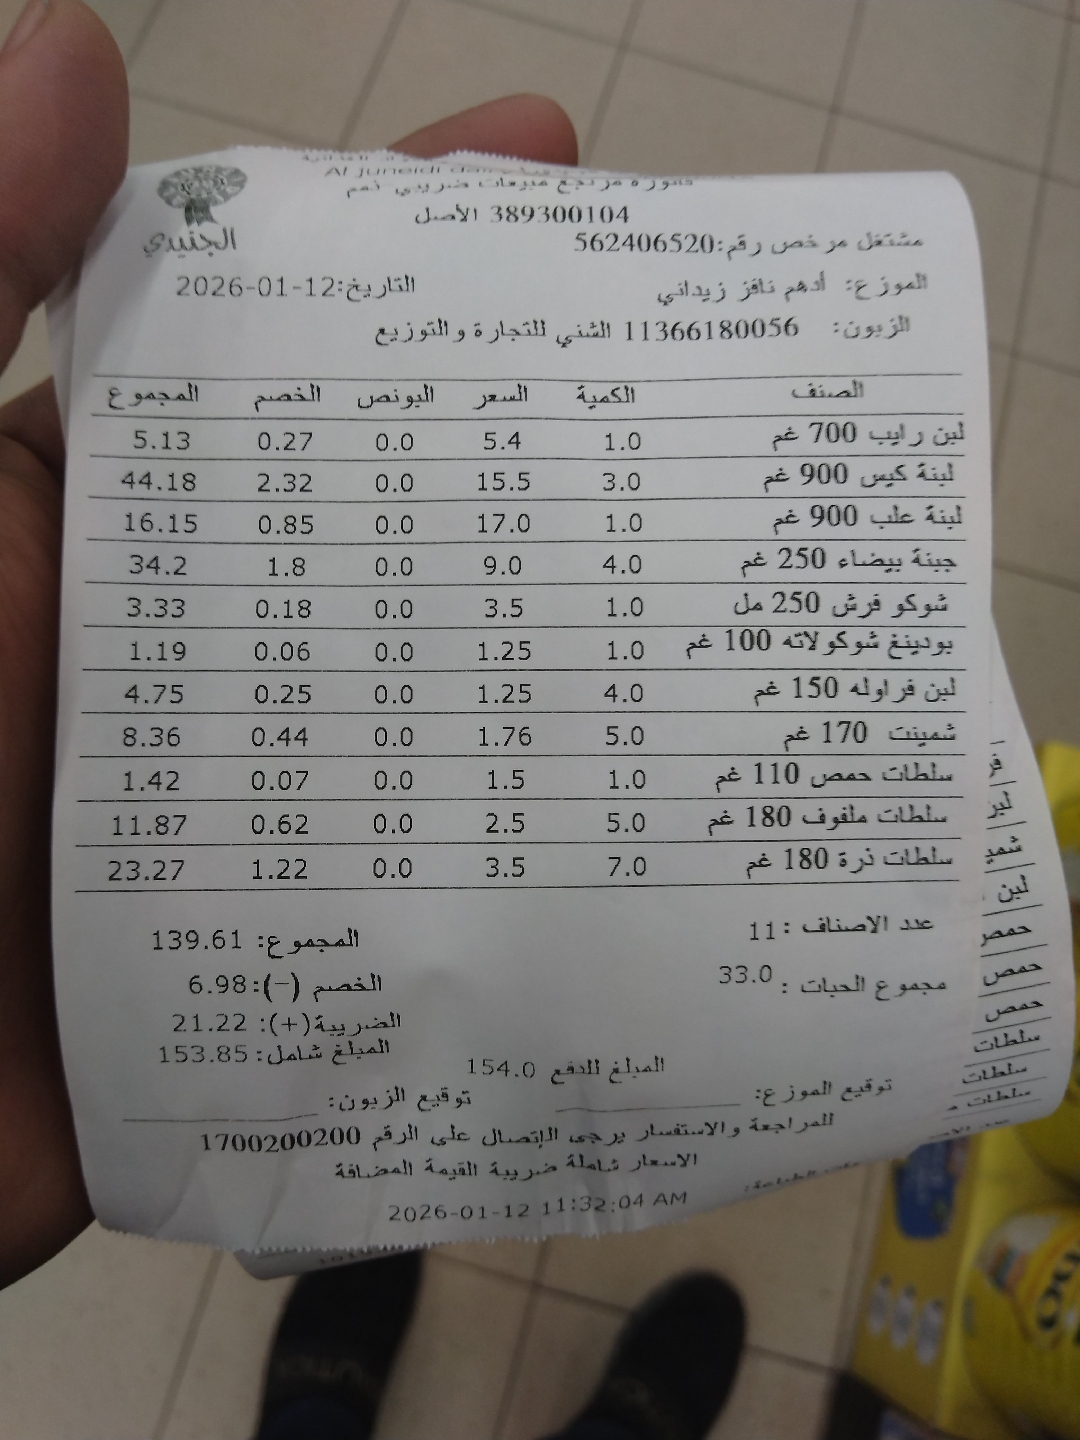 Al Juneidi
فاتورة مرتجع مبيعات ضريبي نمم
389300104 الأصل
الجنيدي
مشتغل مرخص رقم:562406520
الموزع: أدهم نافز زيداني التاريخ:2026-01-12
الزبون: 11366180056 الشني للتجارة والتوزيع
الصنف الكمية السعر البونص الخصم المجموع
لبن رايب 700 غم 1.0 5.4 0.0 0.27 5.13
لبنة كيس 900 غم 3.0 15.5 0.0 2.32 44.18
لبنة علب 900 غم 1.0 17.0 0.0 0.85 16.15
جبنة بيضاء 250 غم 4.0 9.0 0.0 1.8 34.2
شوكو فرش 250 مل 1.0 3.5 0.0 0.18 3.33
بودينغ شوكولاته 100 غم 1.0 1.25 0.0 0.06 1.19
لبن فراوله 150 غم 4.0 1.25 0.0 0.25 4.75
شمينت 170 غم 5.0 1.76 0.0 0.44 8.36
سلطات حمص 110 غم 1.0 1.5 0.0 0.07 1.42
سلطات ملفوف 180 غم 5.0 2.5 0.0 0.62 11.87
سلطات ذرة 180 غم 7.0 3.5 0.0 1.22 23.27
عدد الاصناف : 11 المجموع: 139.61
مجموع الحبات : 33.0 الخصم (-):6.98
الضريبة(+): 21.22
المبلغ شامل: 153.85
المبلغ للدفع 154.0
توقيع الموزع: توقيع الزبون:
للمراجعة والاستفسار يرجى الإتصال على الرقم 1700200200
الاسعار شاملة ضريبة القيمة المضافة
2026-01-12 11:32:04 AM
لبن
حمص
حمص
حمص
سلطات
سلطات
سلطات